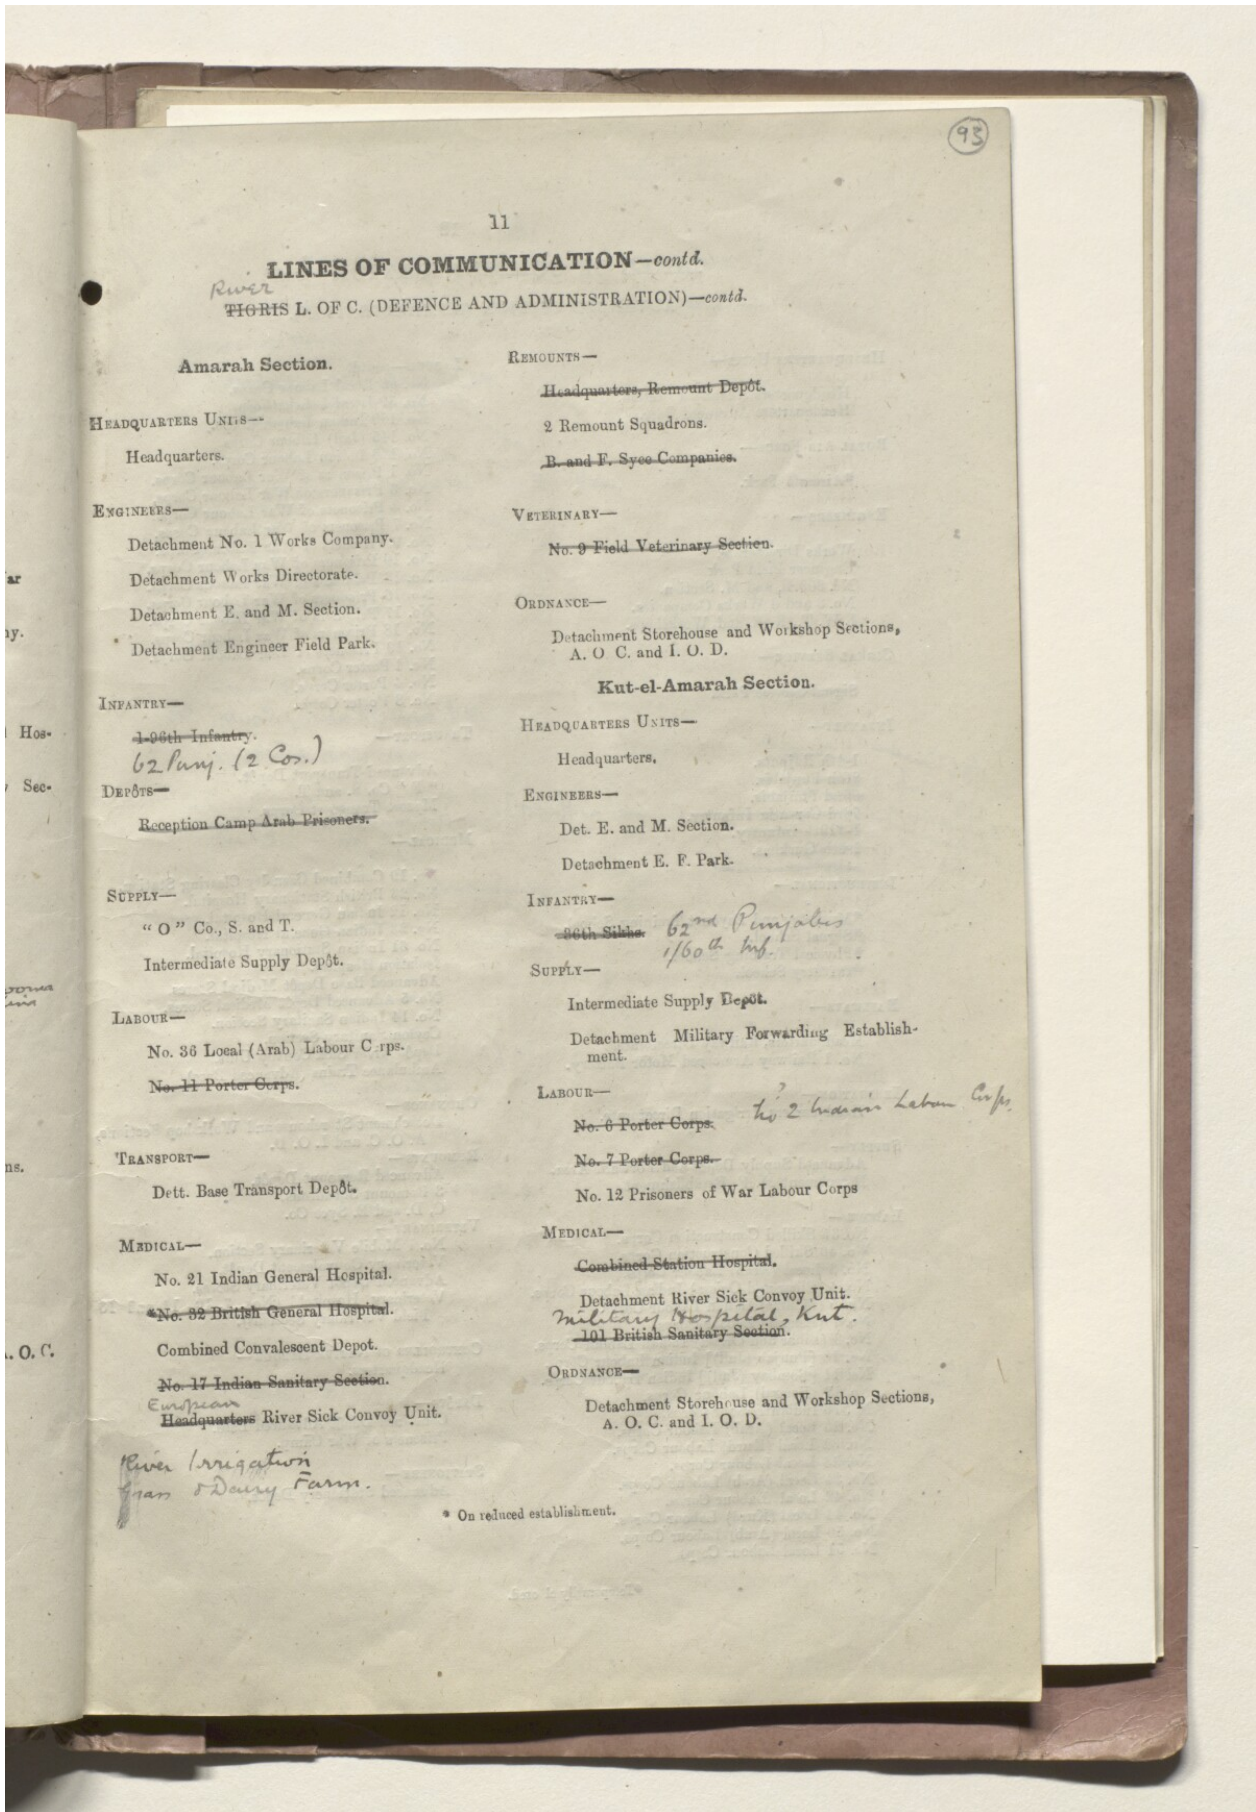 93
11
LINES OF COMMUNICATION—contd.
River
TIGRIS L. OF C. (DEFENCE AND ADMINISTRATION)—contd.
Amarah Section.
HEADQUARTERS UNITS—
Headquarters.
ENGINEERS—
Detachment No. 1 Works Company.
Detachment Works Directorate.
Detachment E. and M. Section.
* Detachment Engineer Field Park.
INFANTRY—
1-96th Infantry.
62 Punj. (2 Cos.)
DEPÔTS—
Reception Camp Arab Prisoners.
SUPPLY—
“ O ” Co., S. and T.
Intermediate Supply Depôt.
LABOUR—
No. 36 Local (Arab) Labour C rps.
No. 11 Porter Corps.
TRANSPORT—
Dett. Base Transport Depôt.
MEDICAL—
No. 21 Indian General Hospital.
*No. 32 British General Hospital.
Combined Convalescent Depot.
No. 17 Indian Sanitary Section.
European
Headquarters River Sick Convoy Unit.
River Irrigation
Grass & Dairy Farm.
REMOUNTS—
Headquarters, Remount Depôt.
2 Remount Squadrons.
B. and F. Syce Companies.
VETERINARY—
No. 9 Field Veterinary Section.
ORDNANCE—
Detachment Storehouse and Workshop Sections,
A. O C. and I. O. D.
Kut-el-Amarah Section.
HEADQUARTERS UNITS—
Headquarters.
ENGINEERS—
Det. E. and M. Section.
Detachment E. F. Park.
INFANTRY—
36th Sikhs. 62nd Punjabis
1/60th Inf.
SUPPLY—
Intermediate Supply Depot.
Detachment Military Forwarding Establish-
ment.
LABOUR—
No. 6 Porter Corps. ? No 2 Indian Labour Corps.
No. 7 Porter Corps.
No. 12 Prisoners of War Labour Corps
MEDICAL—
Combined Station Hospital.
Detachment River Sick Convoy Unit.
Military Hospital, Kut.
101 British Sanitary Section.
ORDNANCE—
Detachment Storehouse and Workshop Sections,
A. O. C. and I. O. D.
* On reduced establishment.
ar
ny.
Hos-
Sec-
ns.
. O. C.